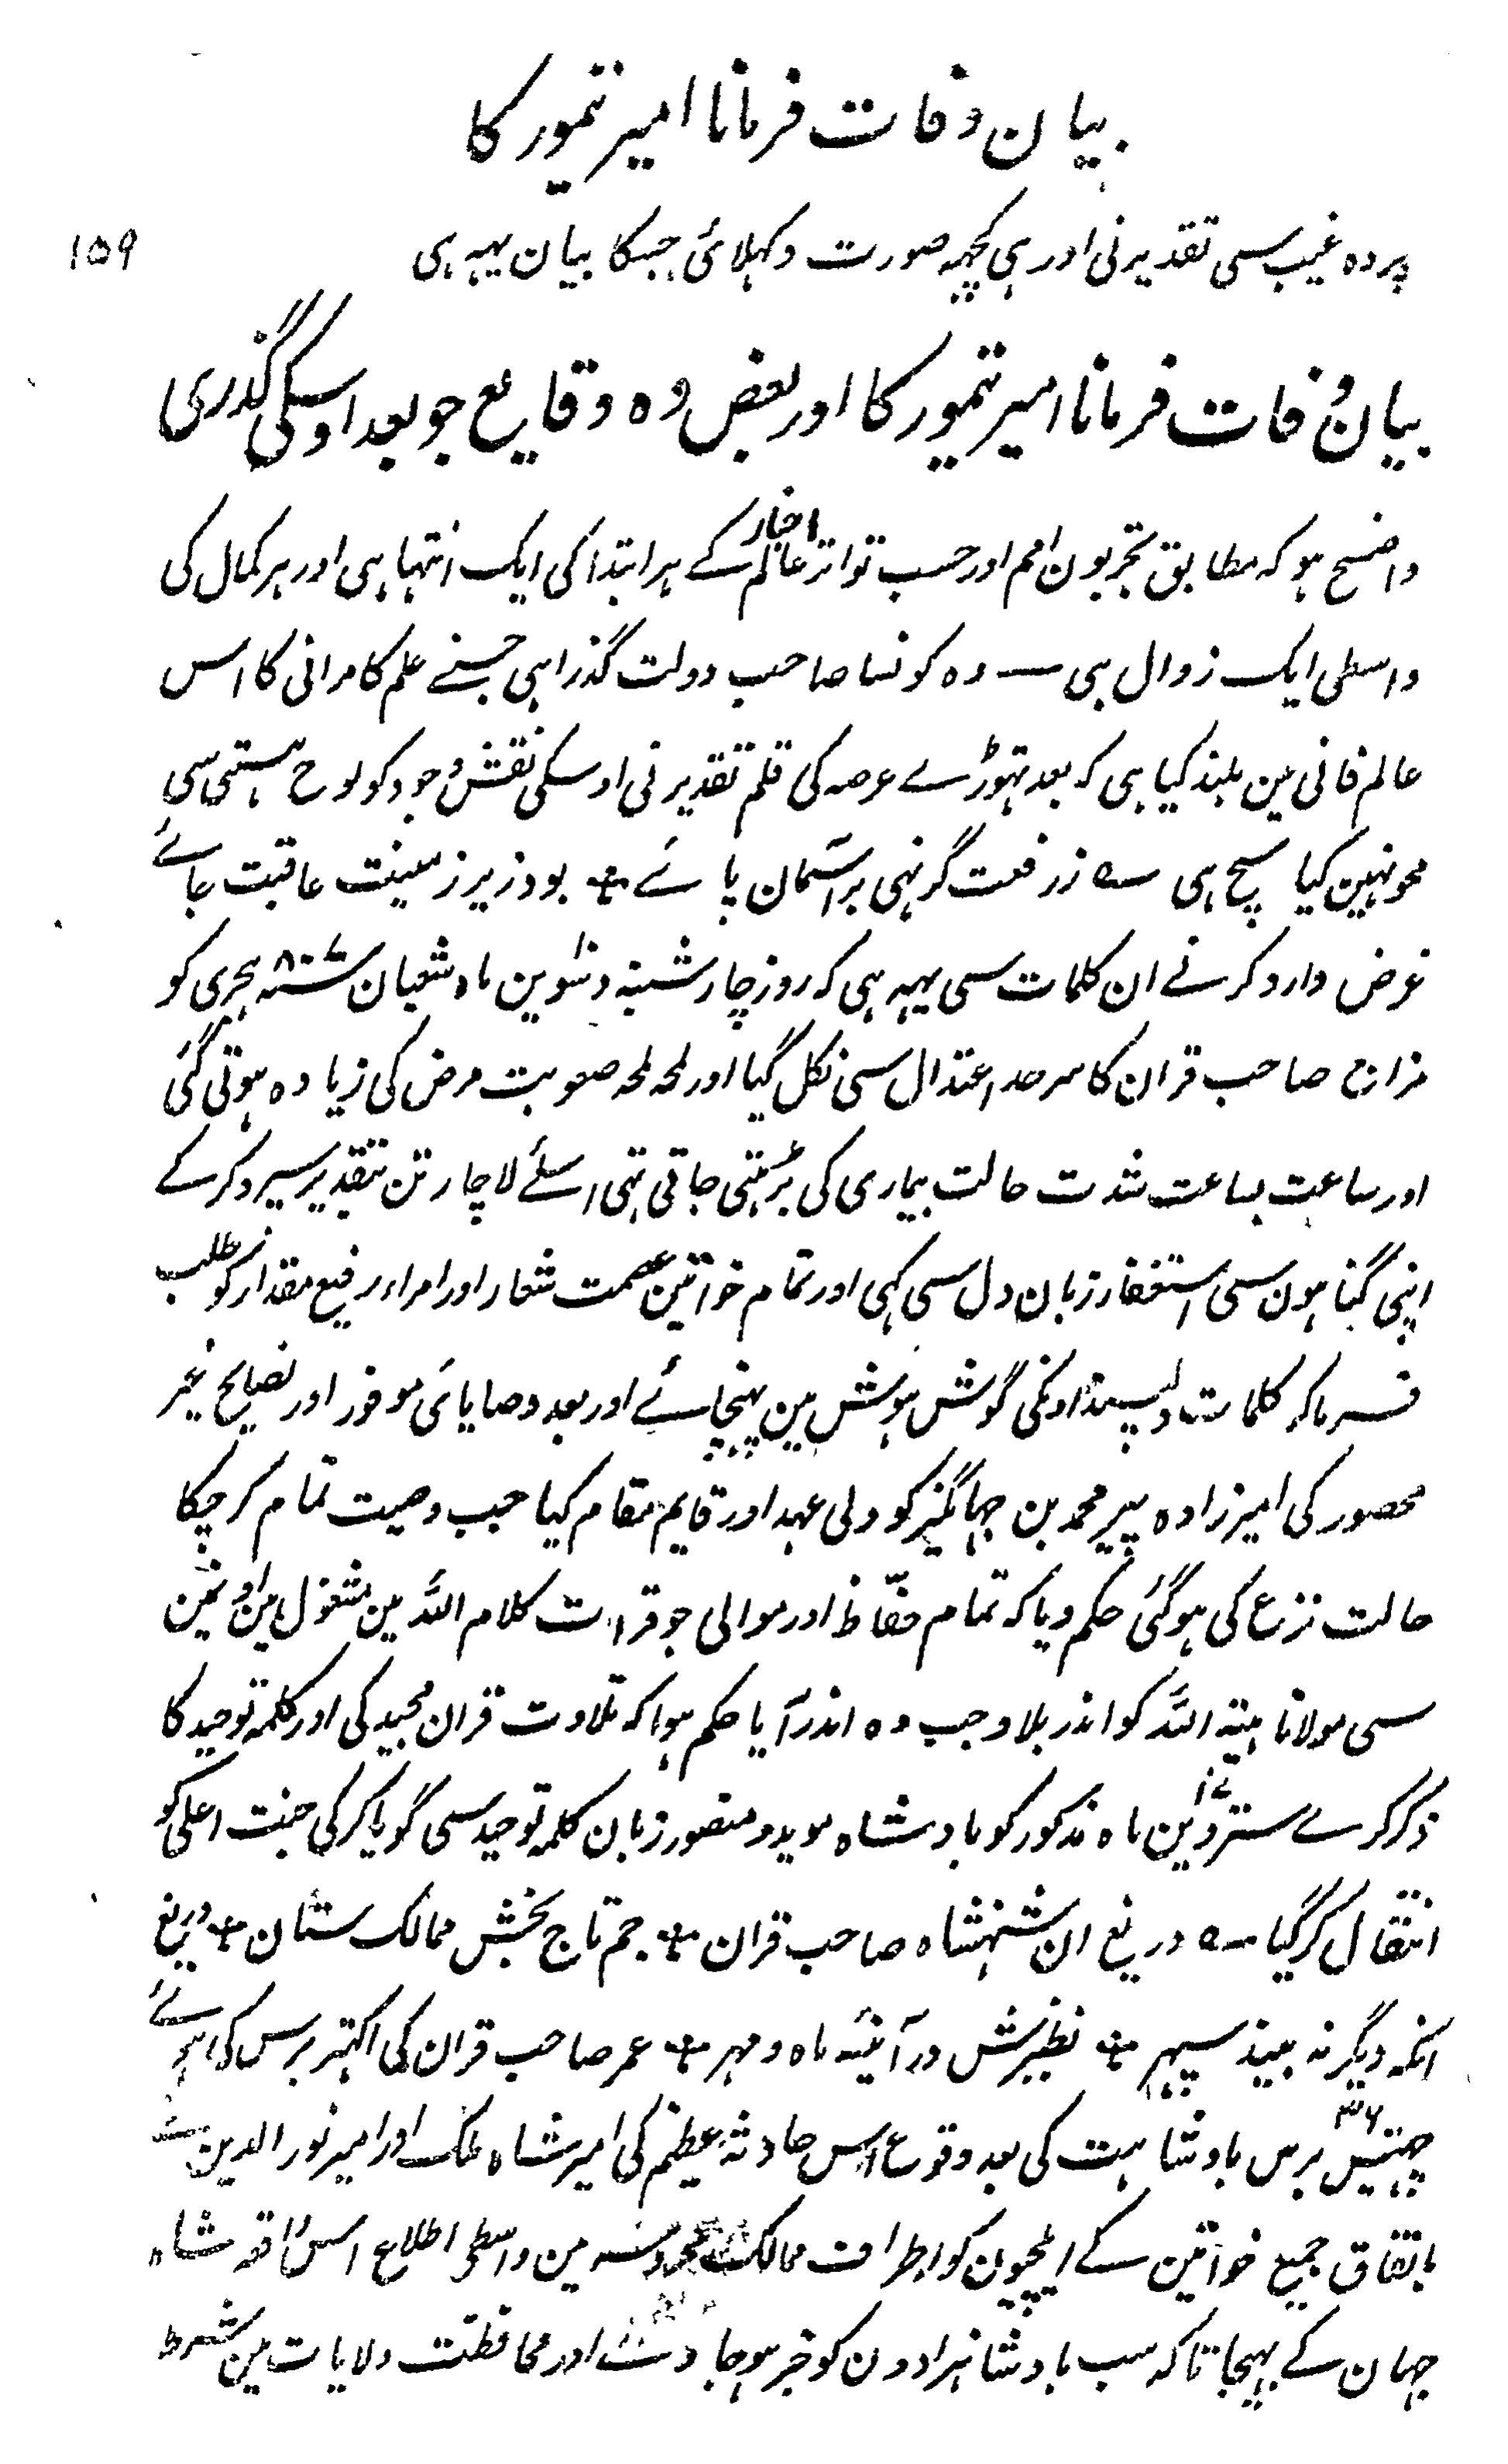 بیان وفات فرمانا امیر تیمور کا
پردہ غیب سی تقدیر نی اور ہی کچہہ صورت دکہلائی جسکا بیان یہہ ہی ۱۵۹
بیان وفات فرمانا امیر تیمور کا اور بعض وہ وقایع جو بعد اوسکی گذری
واضح ہو کہ مطابق تجربون امم اور حسب تواتر اخبار عالم کے ہر ابتدا کی ایک انتہا ہی اور ہر کمال کی
واسطی ایک زوال ہی ــ وہ کونسا صاحب دولت گذرا ہی جسنے علم کامرانی کا اس
عالم فانی مین بلند کیا ہی کہ بعد تہوڑے عرصہ کی قلم تقدیر نی اوسکی نقش وجود کو لوح ہستی سی
محو نہین کیا سچ ہی ــہ ز رفعت گر نہی بر آسمان پائے ٭ بود زیر زمینت عاقبت جائے
غرض وارد کرنے ان کلمات سی یہہ ہی کہ روز چار شنبہ دسوین ۱۰ ماہ شعبان سنہ ۸۰۷ ہجری کو
مزاج صاحب قران کا سرحد اعتدال سی نکل گیا اور لمحہ لمحہ صعوبت مرض کی زیادہ ہوتی گئی
اور ساعت بساعت شدت حالت بیماری کی بڑہتی جاتی تہی اسلئے لاچار تن بتقدیر سپرد کر کے
اپنی گناہون سی استغفار زبان دل سی کہی اور تمام خواتین عصمت شعار اور امراء رفیع مقدار کو طلب
فرما کر کلمات دلپسند اونکی گوش ہوش مین پہنچائے اور بعد وصایائی موفور اور نصایح غیر
محصور کی امیرزادہ پیر محمد بن جہانگیر کو ولی عہد اور قایم مقام کیا جب وصیت تمام کر چکا
حالت نزع کی ہو گئی حکم دیا کہ تمام حفّاظ اور موالی جو قراءت کلام اللہ مین مشغول ہین اونمین
سی مولانا ہبتہ اللہ کو اندر بلاو جب وہ اندر آیا حکم ہوا کہ تلاوت قران مجید کی اور کلمہ توحید کا
ذکر کرے سترہوین ۱۷ ماہ مذکور کو بادشاہ موید و منصور زبان کلمہ توحید سی گویا کر کی جنت اعلی کو
انتقال کر گیا ــہ دریغ ان شہنشاہ صاحب قران ٭ جم تاج بخش ممالک ستان ٭ دریغ
انکہ دیگر نہ بیند سپہر ٭ نظیرش در آئینہ ماہ و مہر ٭ عمر صاحب قران کی اکہتر برس کی ہوئے
چہتیس ۳۶ برس بادشاہت کی بعد وقوع اس حادثہ عظیم کی امیر شاہ ملک اور امیر نور الدین نے
باتفاق جمیع خواتین کے ایلچیون کو اطراف ممالک محروسہ مین واسطی اطلاع اس واقعہ شاہ
جہان کے بہیجا تاکہ سب بادشاہزادون کو خبر ہو جاوے اور محافظت ولایات مین شرط